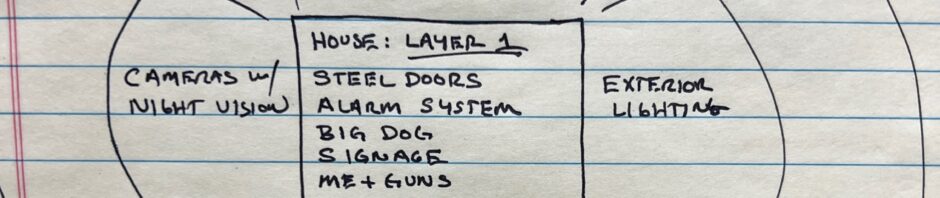 HOUSE: LAYER 1
CAMERAS w/
NIGHT VISION
STEEL DOORS
ALARM SYSTEM
BIG DOG
SIGNAGE
ME + GUNS
EXTERIOR
LIGHTING